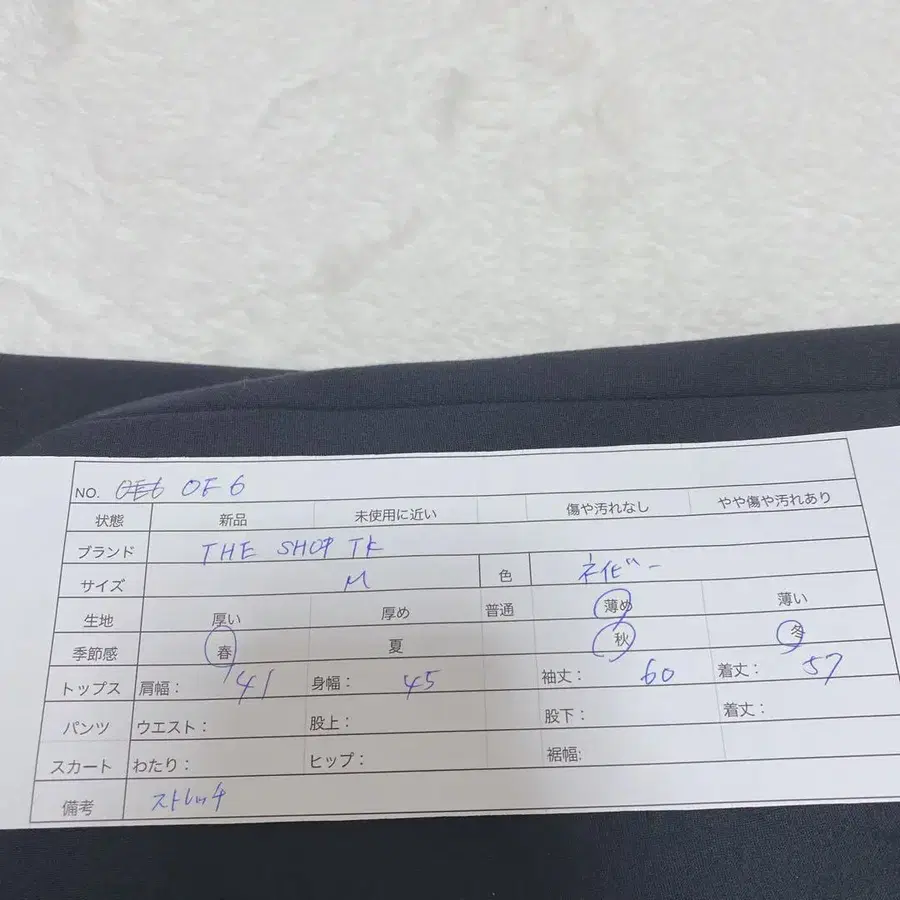 NO. OF6 OF6
状態 新品 未使用に近い 傷や汚れなし やや傷や汚れあり
ブランド THE SHOP TK
サイズ M 色 ネイビー
生地 厚い 厚め 普通 薄め 薄い
季節感 春 夏 秋 冬
トップス 肩幅: 41 身幅: 45 袖丈: 60 着丈: 57
パンツ ウエスト: 股上: 股下: 着丈:
スカート わたり: ヒップ: 裾幅:
備考 ストレッチ